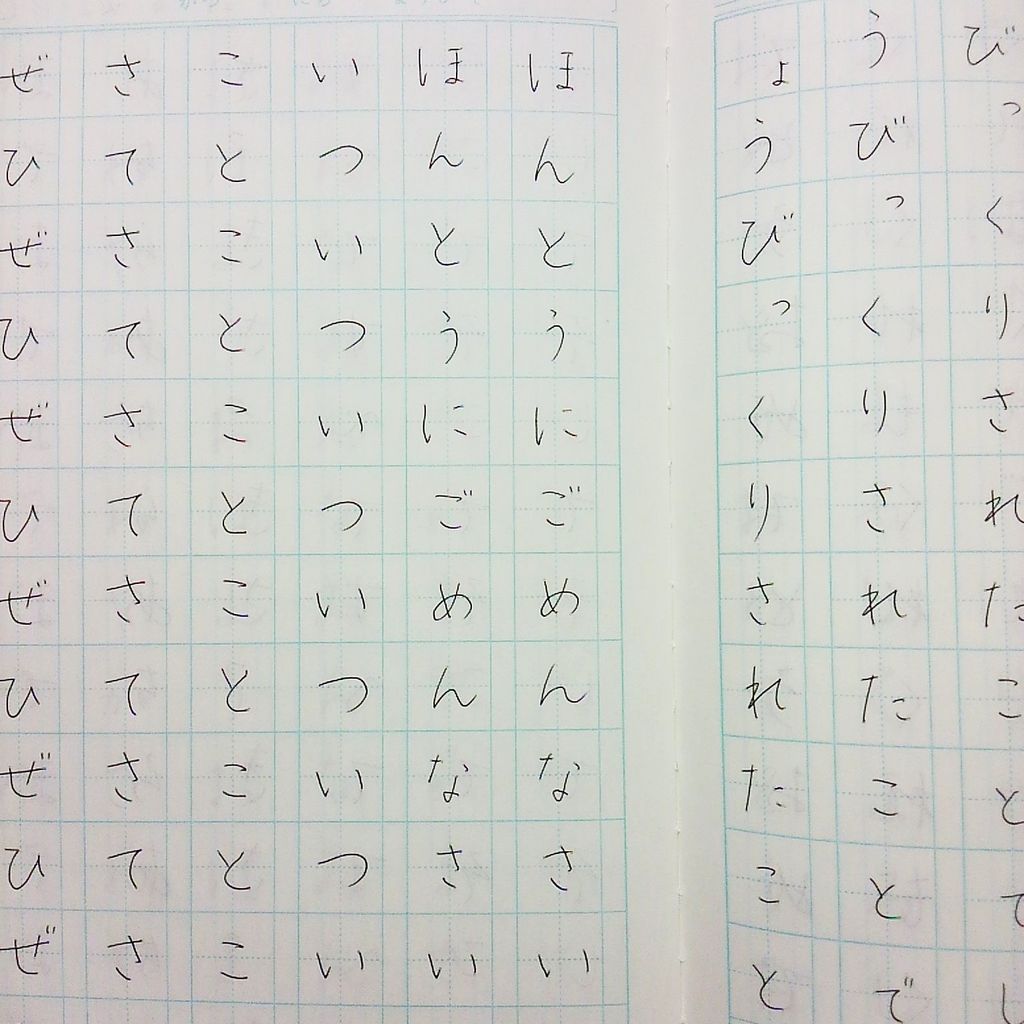 びっくりされたことでし
うびっくりされたことで
ょうびっくりされたこと
ほんとうにごめんなさい
ほんとうにごめんなさい
いついついついついつい
ことことことことことこ
さてさてさてさてさてさ
ぜひぜひぜひぜひぜひぜ